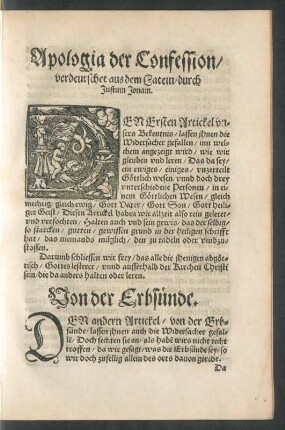 Apologia der Confession/
verdeutschet aus dem Latein/durch
Justum Jonam.
DEN Ersten Artickel vn-
sers Bekentnis/ lassen jhnen die
Widersacher gefallen/ inn wel-
chem angezeigt wird/ wie wir
gleuben vnd leren/ Das da sey
ein ewiges/ einiges/ vnzerteilt
Göttlich wesen/ vnnd doch drey
vnterschiedene Personen/ in ei-
nem Göttlichen Wesen/ gleich
mechtig/ gleich ewig/ Gott Vater/ Gott Son/ Gott heili-
ger Geist/ Diesen Artickel haben wir allzeit also rein geleret
vnd verfochten/ Halten auch vnd sein gewis/ das der selbig/
so starcken/ gutten/ gewissen grund in der heiligen schrifft
hat/ das niemands müglich/ den zu tadeln oder vmbzu-
stossen.
Darumb schliessen wir frey/ das alle die jhenigen abgöt-
tisch/ Gottes lesterer/ vnnd ausserhalb der Kirchen Christi
sein/ die da anders halten oder leren.
Von der Erbsünde.
DEN andern Artickel/ von der Erb-
sünde/ lassen jhnen auch die Widersacher gefal-
len/ Doch fechten sie an/ als habē wirs nicht recht
troffen/ da wir gesagt/ was die Erbsünde sey/ so
wir doch zufellig allein des orts dauon geredt.
Da